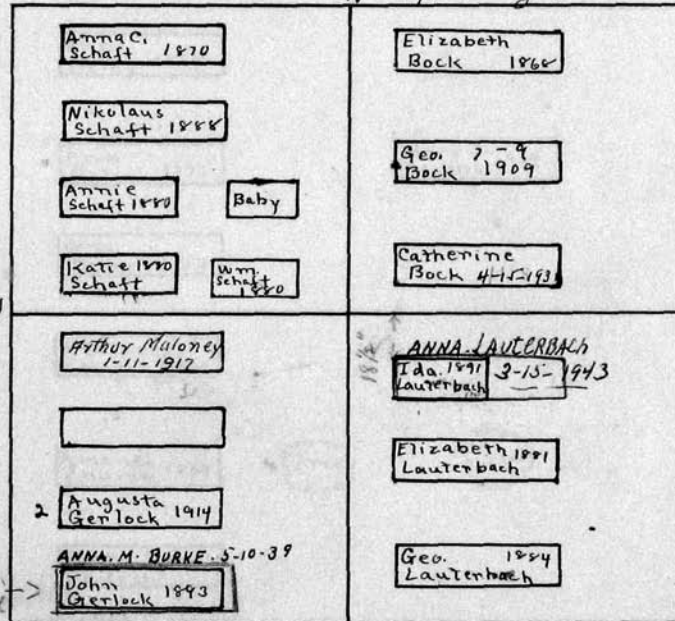 Anna C.
Schaft 1870
Nikolaus
Schaft 1888
Annie
Schaft 1880
Baby
Katie 1880
Schaft
Wm.
Schaft
1880
Elizabeth
Bock 1868
Geo. 7-9
Bock 1909
Catherine
Bock 4-15-193
Arthur Maloney
1-11-1917
2
Augusta
Gerlock 1914
ANNA. M. BURKE. 5-10-39
John
Gerlock 1893
18½"
ANNA LAUTERBACH
Ida. 1891
Lauterbach
3-15-1943
Elizabeth 1881
Lauterbach
Geo. 1884
Lauterbach